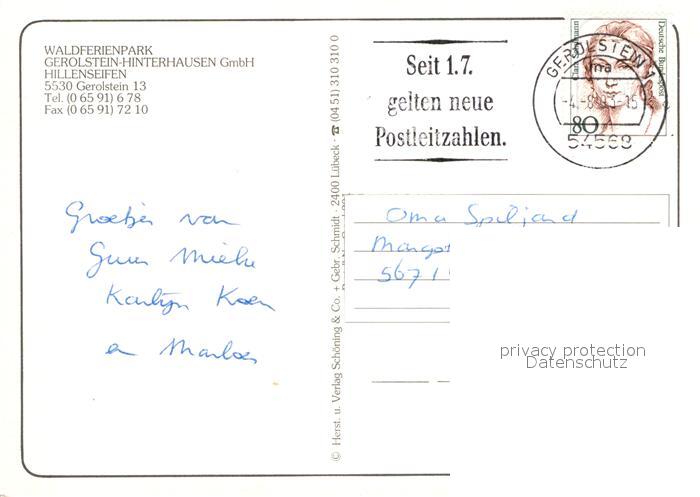 WALDFERIENPARK
GEROLSTEIN-HINTERHAUSEN GmbH
HILLENSEIFEN
5530 Gerolstein 13
Tel. (0 65 91) 6 78
Fax (0 65 91) 72 10
Seit 1.7.
gelten neue
Postleitzahlen.
GEROLSTEIN 1
54568
Deutsche Bundespost
80
© Herst. u. Verlag Schöning & Co. + Gebr. Schmidt · 2400 Lübeck · ☎ (04 51) 310 310 0
Groetjes van
Guus Mieke
Karlijn Koen
en Marloes
Oma
5671
privacy protection
Datenschutz